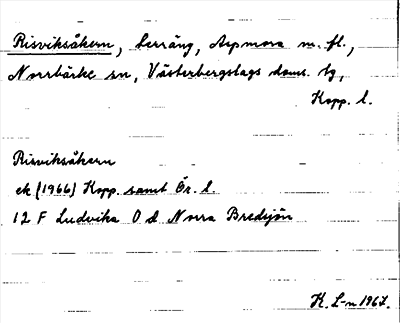 Risviksåkern, Lerräng, Aspmora m. fl.,
Norrbärke sn, Västerbergslags doms. tg,
Kopp. l.
Risviksåkern
ek (1966) Kopp. samt Ör. l.
12 F Ludvika 0 d Norra Bredsjön
K. L-n 1967.